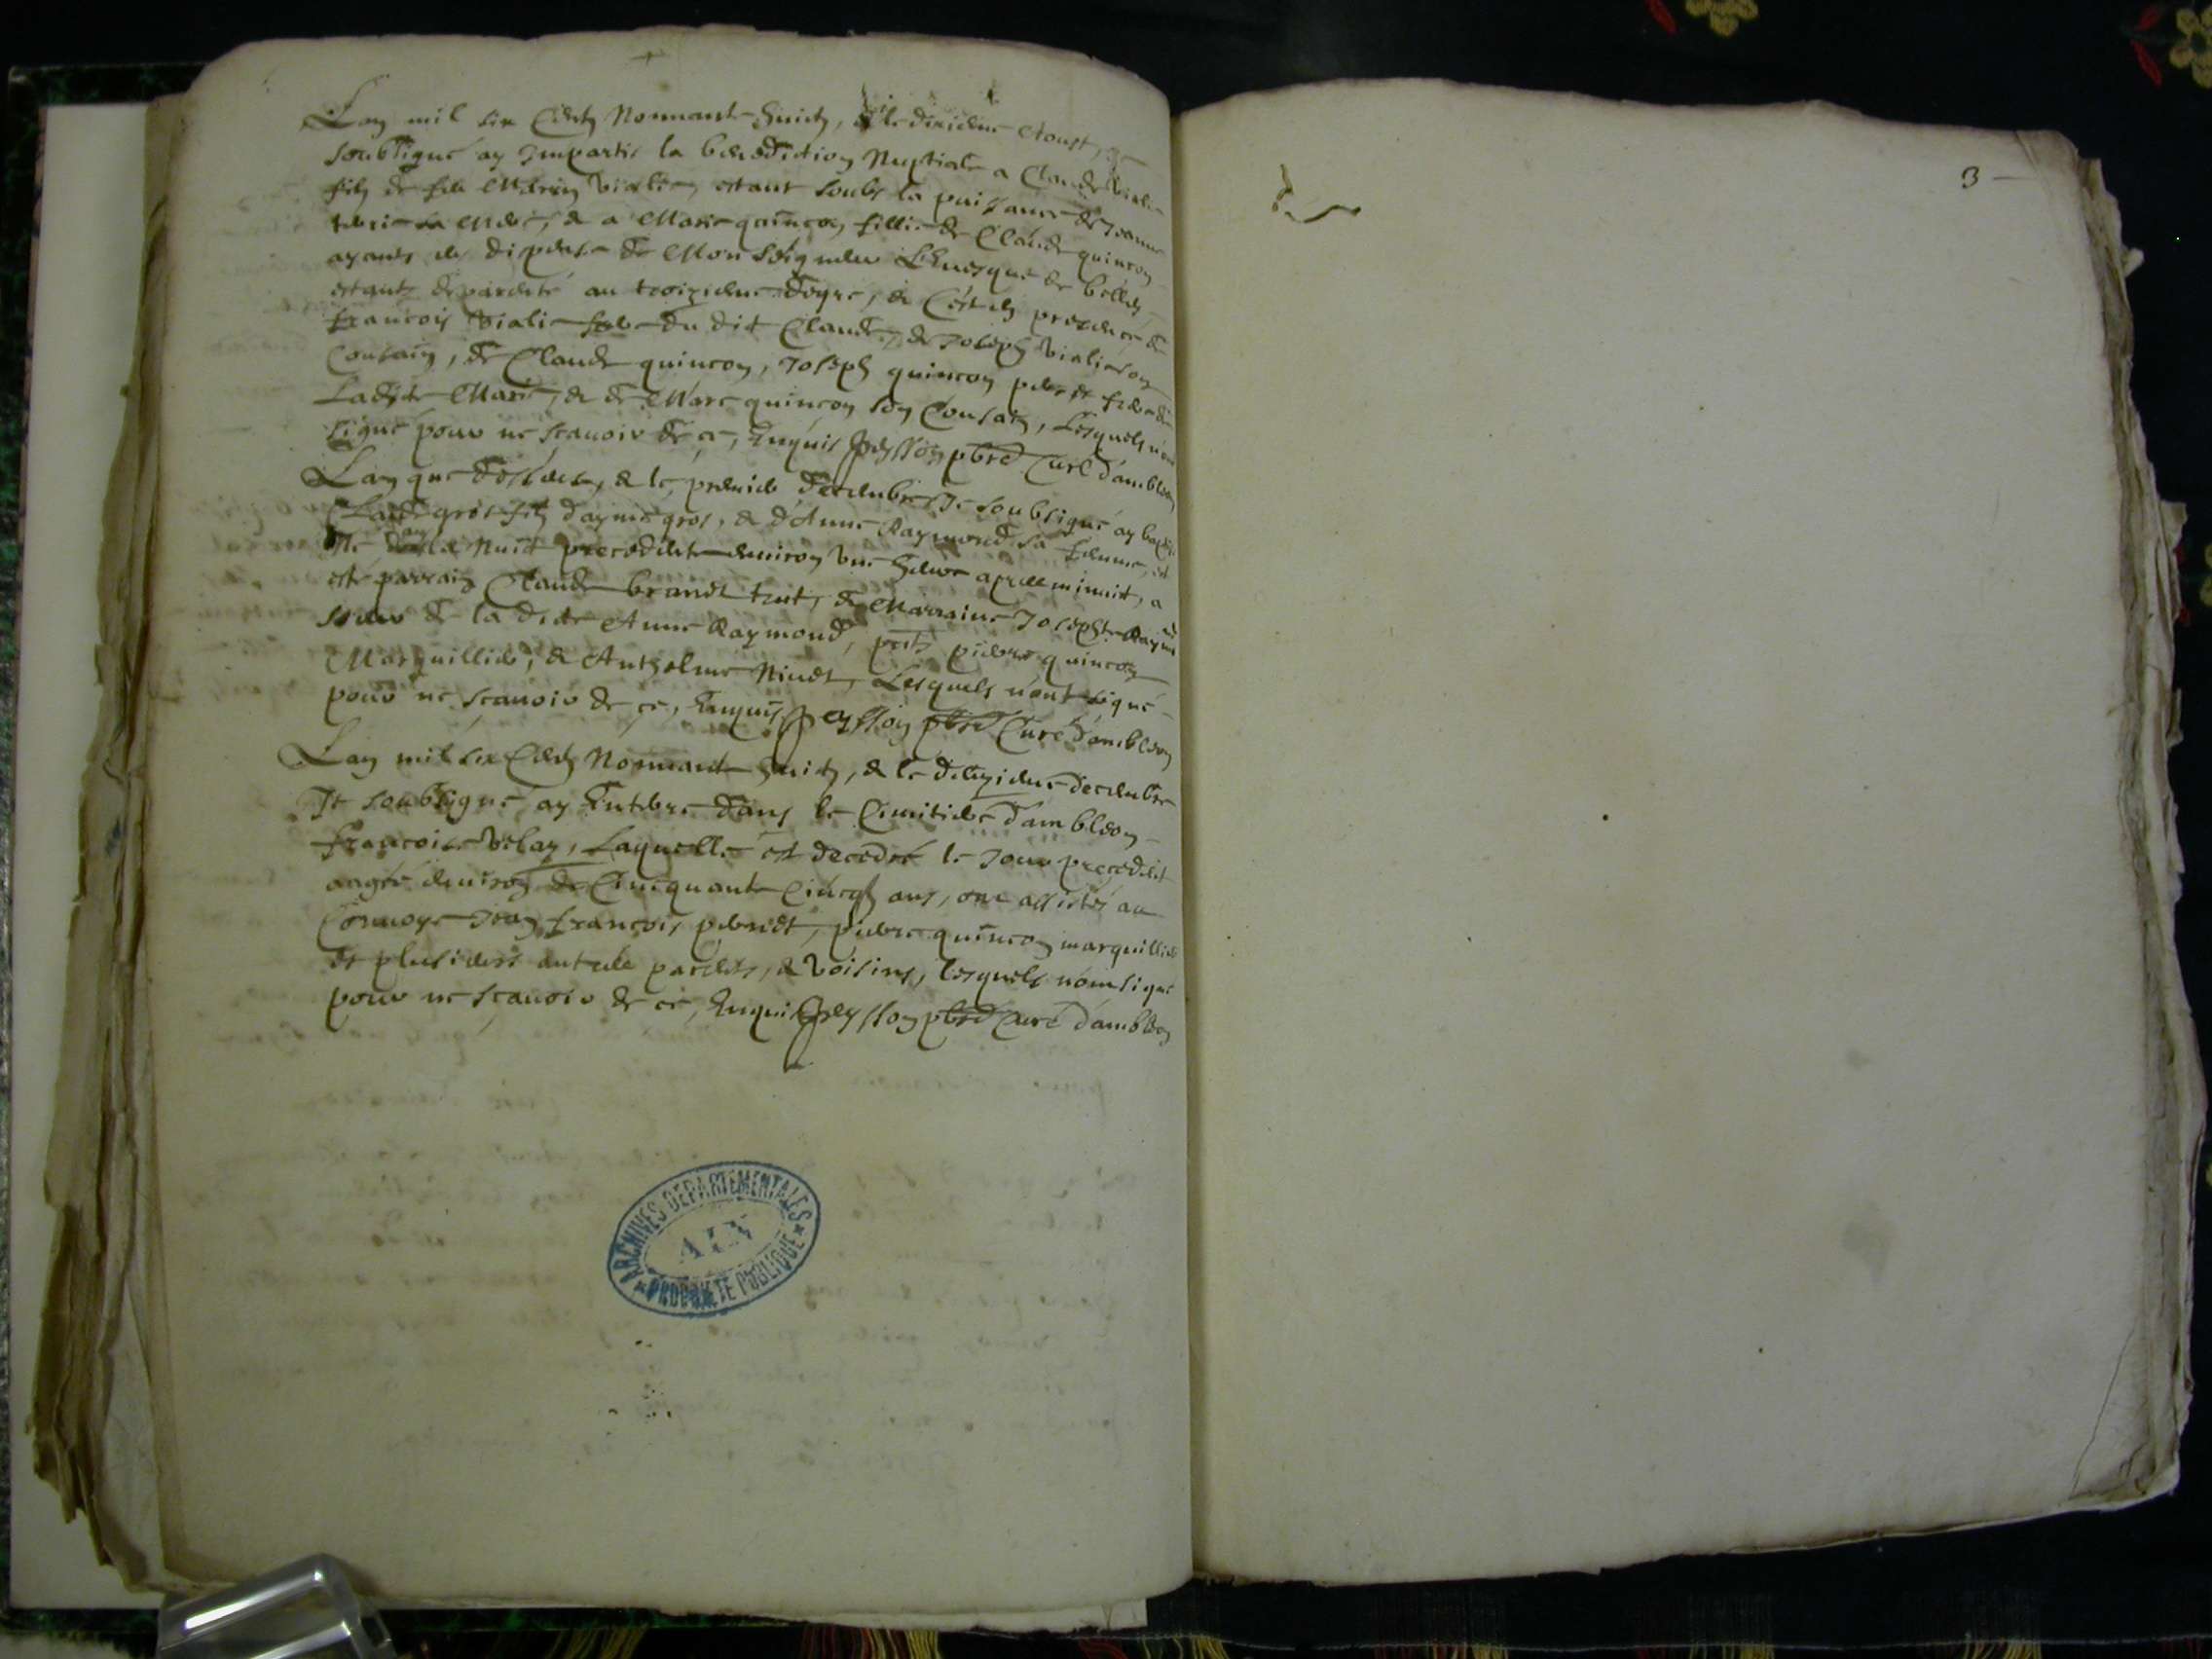 Lan mil six Centz Nonnante huict, & le dixieme Aoust, je
soubsigné ay Imparti la benediction Nuptiale a Claude Vialie
filz de feu Vialie, estant soubs la puissance de Jeanne
sa Mere, & a Marie quincon fillie de Claude quincon
ayants eu dispense de Monseigneur LEuesque de belley
estantz de parenté au troizieme degre, & C'est en presence de
francois Vialie frere du dit Claude, de Joseph Vialie son
Cousain, de Claude quincon, Joseph quincon pere et frere de
Ladite Marie, & de Marc quincon son Cousain, Lesquels n'ont
signé pour ne scauoir de ce, Enquis Peysson pbre Curé d'ambleon
Lan que dessus, & le premier decembre Je soubsigné ay baptisé
Claude gros filz d'aymé gros, & d'Anne Raymond sa femme, né
la Nuit precedente enuiron vne heure apres minuit, a
esté parrain Claude brandt, & Marraine Josephte Raymond
soeur de la dite Anne Raymond, pntz pierre quincon
Marguillier, & Anthelme Niuet, Lesquels n'ont signé
pour ne scauoir de ce, Enquis Peysson pbre Curé d'ambleon
Lan mil six Centz Nonnante huict, & le decembre
Je soubsigné ay Enterre dans le Cimitiere d'ambleon
francoise Velay, Laquelle est decedée le Jour precedent
aagée enuiron de Cinquante Cincq ans, ont assistés au
Conuoye Jean francois pernet, pierre quincon marguillier
et plusieurs autres parents, & Voisins, lesquels n'ont signé
pour ne scauoir de ce, Enquis Peysson pbre Curé d'ambleon
ARCHIVES DEPARTEMENTALES
AIN
PROPRIETE PUBLIQUE
3